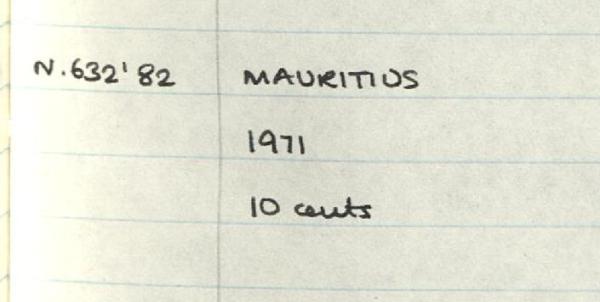 N.632'82 MAURITIUS
1971
10 cents